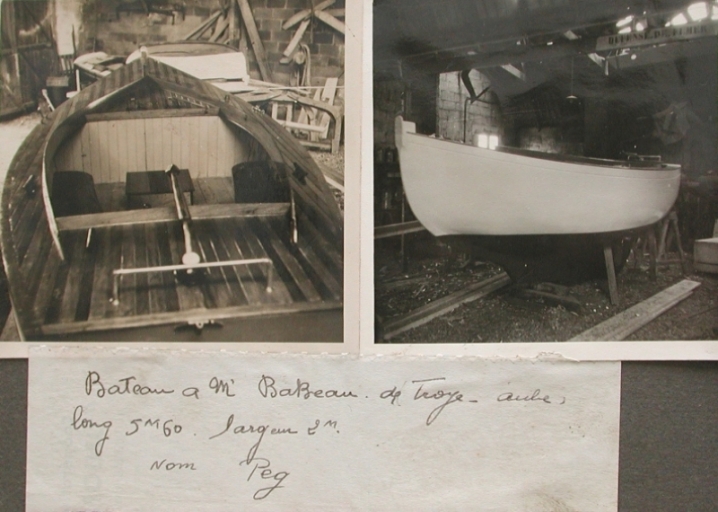 DEFENSE DE FUMER
Bateau a Mr BaBeau. de Troye - aube,
long 5M60. largeur 2M.
Nom Peg